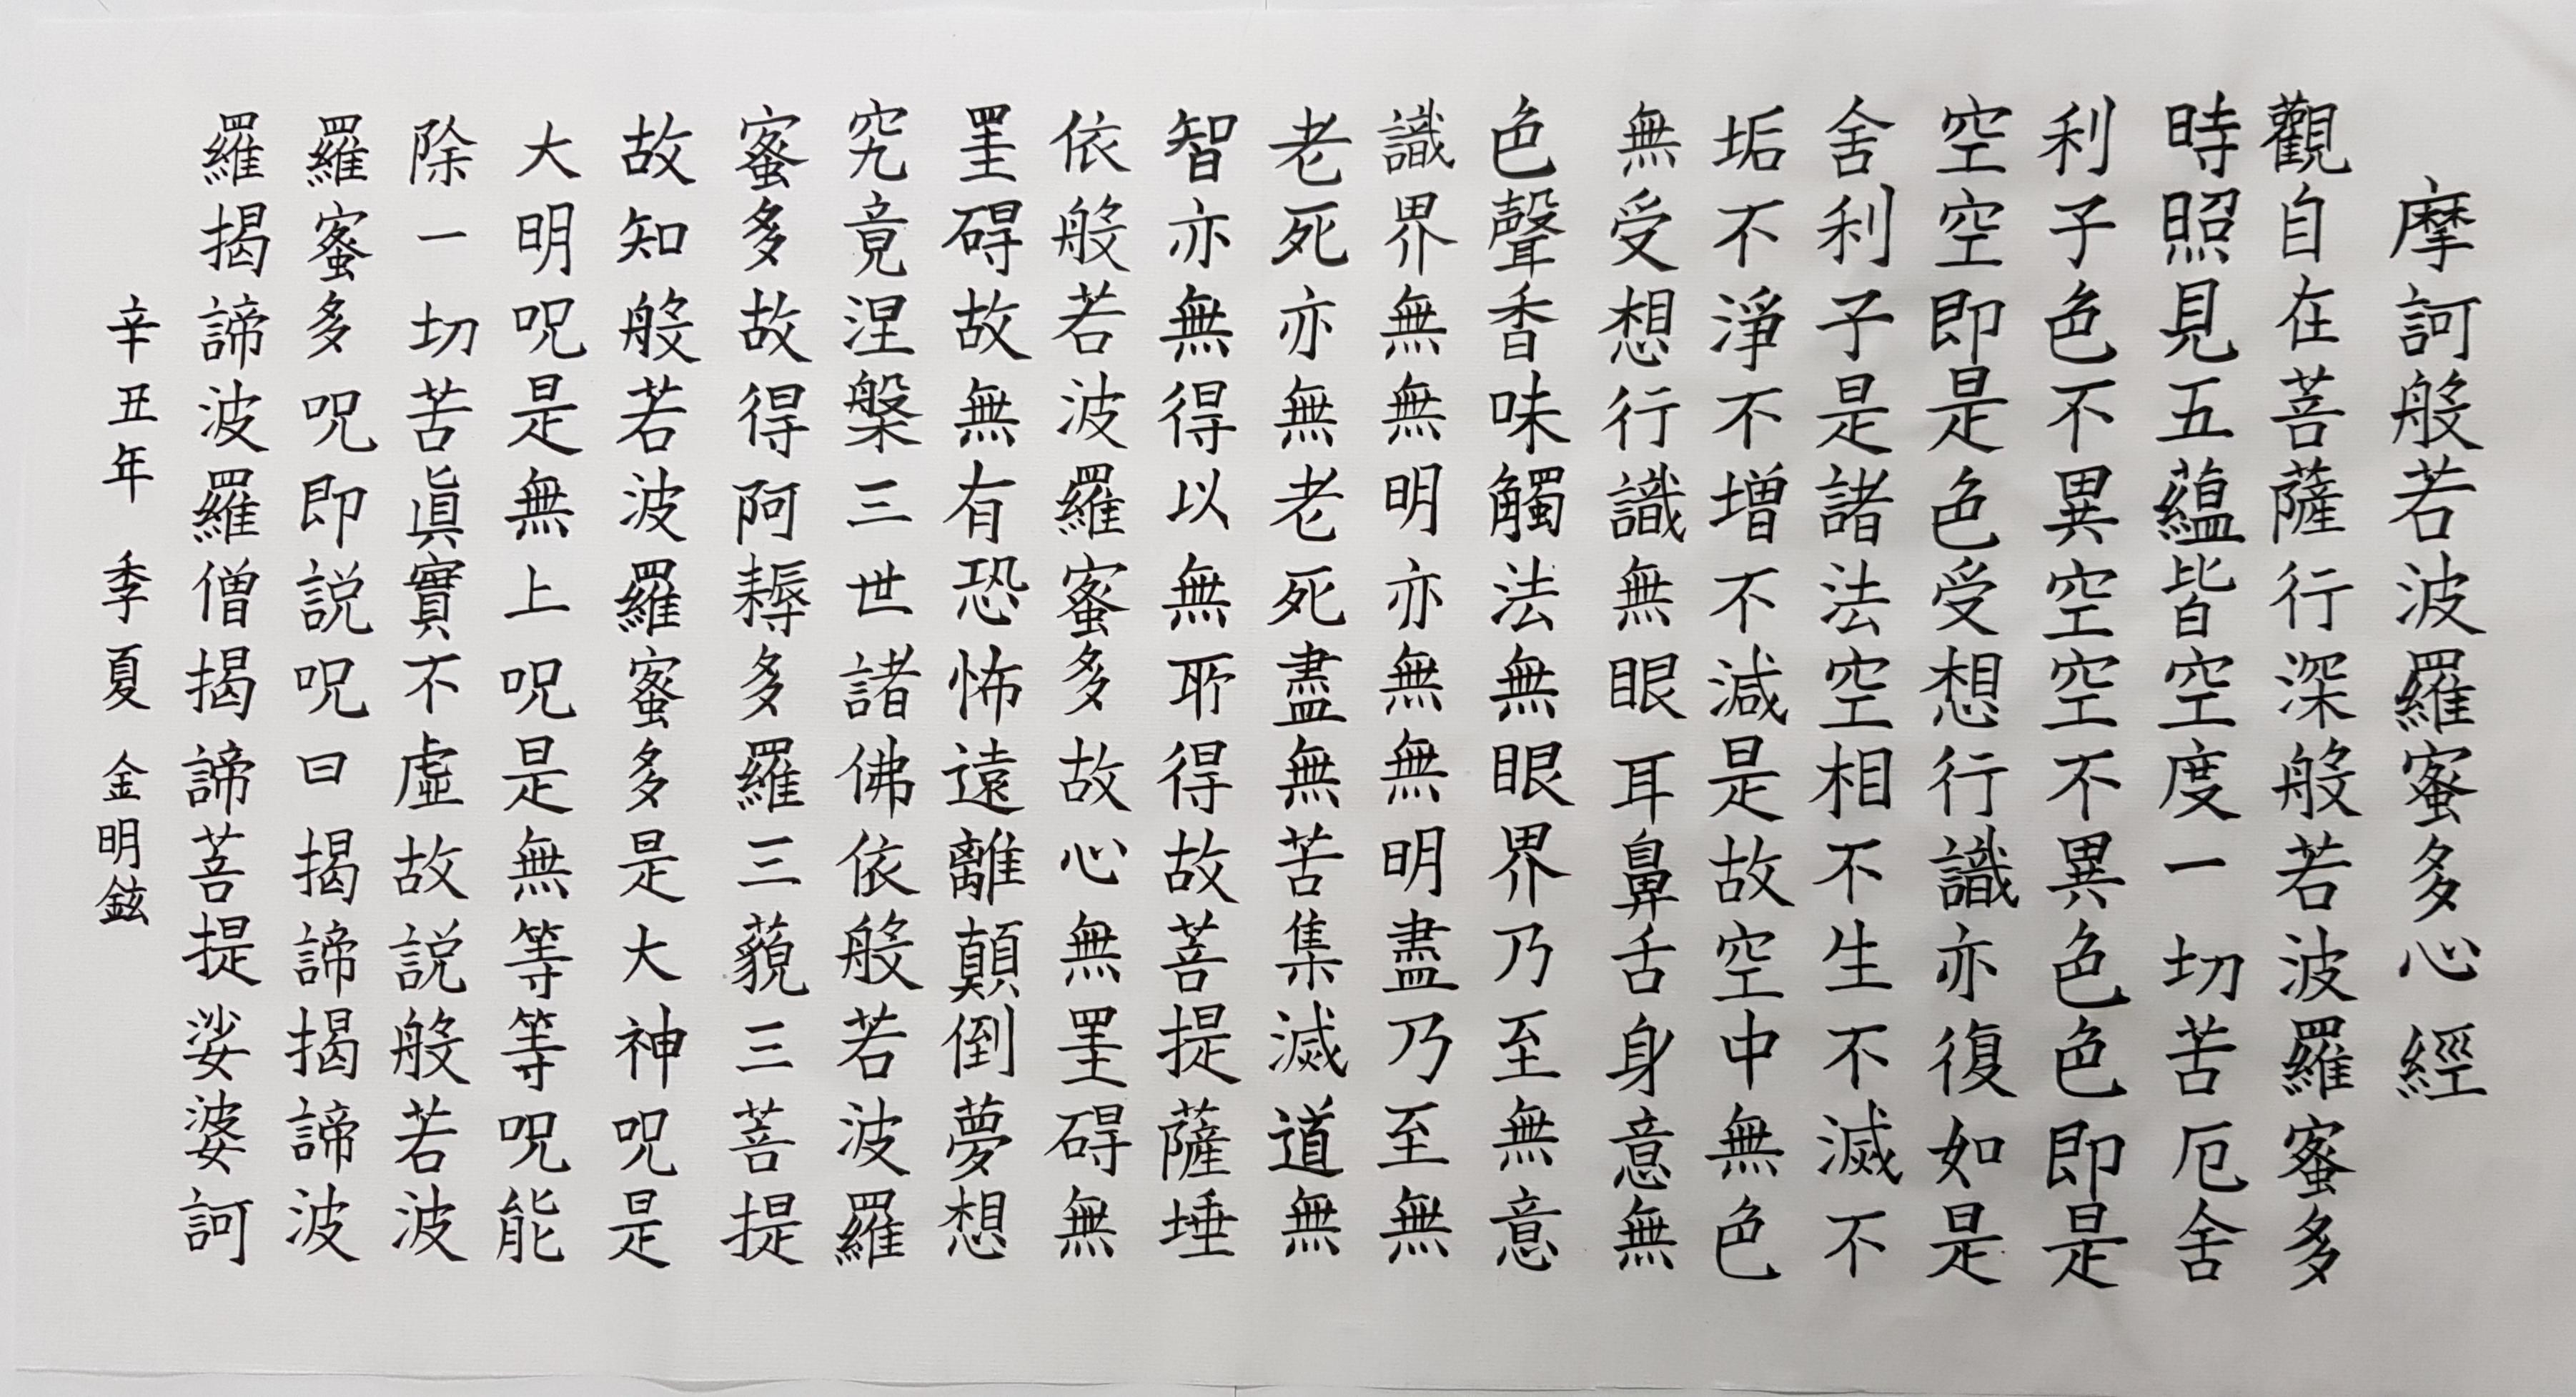 摩訶般若波羅蜜多心經
觀自在菩薩行深般若波羅蜜多
時照見五蘊皆空度一切苦厄舍
利子色不異空空不異色色即是
空空即是色受想行識亦復如是
舍利子是諸法空相不生不滅不
垢不淨不增不減是故空中無色
無受想行識無眼耳鼻舌身意無
色聲香味觸法無眼界乃至無意
識界無無明亦無無明盡乃至無
老死亦無老死盡無苦集滅道無
智亦無得以無所得故菩提薩埵
依般若波羅蜜多故心無罣碍無
罣碍故無有恐怖遠離顛倒夢想
究竟涅槃三世諸佛依般若波羅
蜜多故得阿耨多羅三藐三菩提
故知般若波羅蜜多是大神呪是
大明呪是無上呪是無等等呪能
除一切苦眞實不虛故説般若波
羅蜜多呪即説呪曰揭諦揭諦波
羅揭諦波羅僧揭諦菩提娑婆訶
辛丑年 季夏 金明鉉